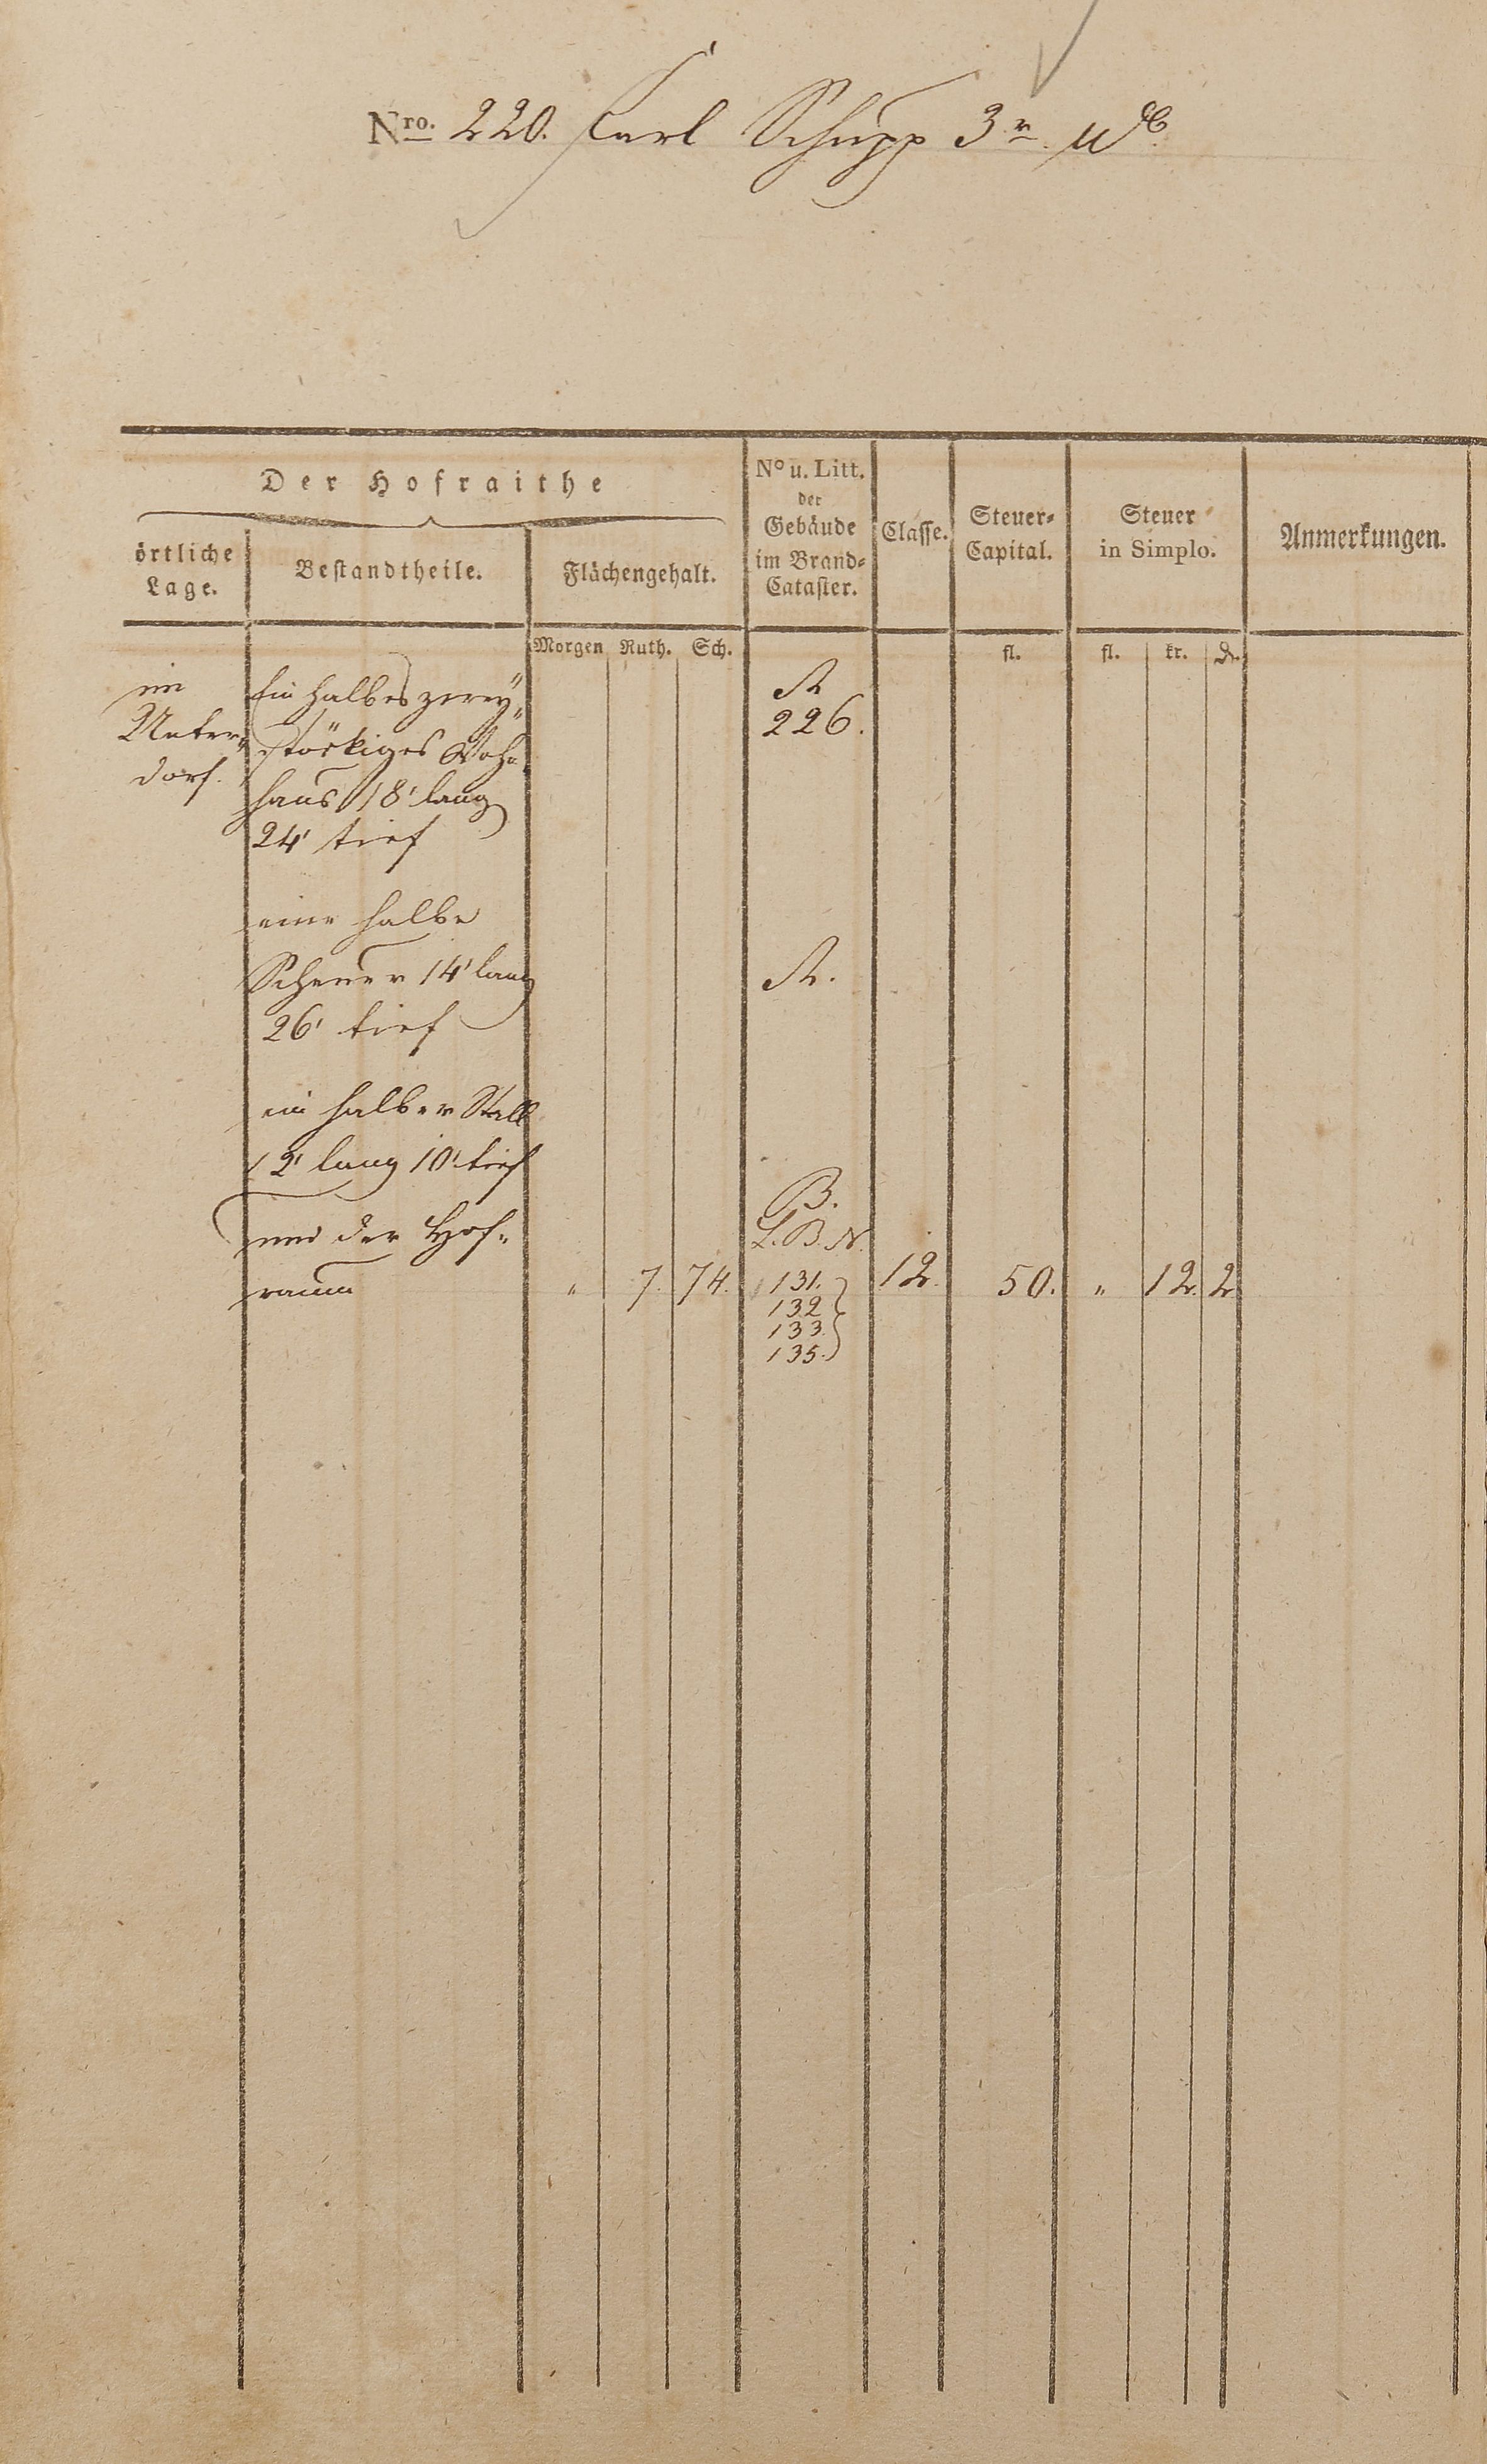 Nro. 220. Karl Schupp 3r. Wb.
Der Hofraithe
örtliche Lage.
Bestandtheile.
Flächengehalt.
No u. Litt. der Gebäude im Brand-Cataster.
Classe.
Steuer-Capital.
Steuer in Simplo.
Anmerkungen.
Morgen Ruth. Sch. fl. fl. kr. d.
im Ein halbes zwey- A
Unter- stöckiges Wohn- 226.
dorf. haus 18' lang
24' tief
eine halbe
Scheuer 14' lang A.
26' tief
ein halber Stall
12' lang 10' tief B.
und der Hof- L. B. N.
raum " 7. 74. 131. 12. 50. " 12. 2
132
133.
135.